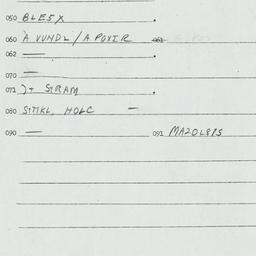 050 BLE5X .
060 A VUNDL / A POVIR 061
062 — .
070 —
071 )+ STRAM .
080 STTKL, HOLC —
090 — 091 MA20L8PS